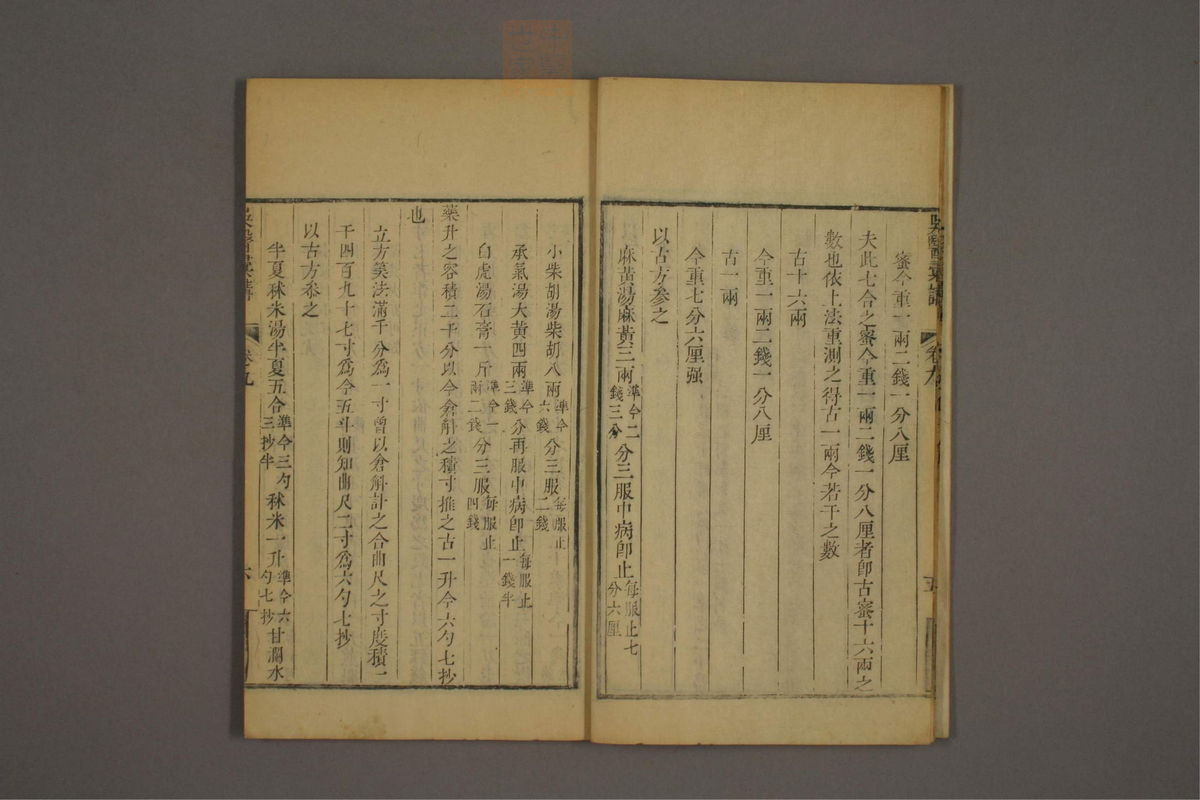 蜜今重一兩二錢一分八厘
夫此七合之蜜今重一兩二錢一分八厘者卽古蜜十六兩之
數也依上法重測之得古一兩今若干之數
古十六兩
今重一兩二錢一分八厘
古一兩
今重七分六厘强
以古方參之
麻黃湯麻黃三兩準今二錢三分分三服中病卽止每服止七分六厘
小柴胡湯柴胡八兩準今六錢分三服每服止二錢
承氣湯大黃四兩準今三錢分再服中病卽止每服止一錢半
白虎湯石膏一斤準今一兩二錢分三服每服止四錢
藥升之容積二千分以今倉斛之積寸推之古一升今六勺七抄
也
立方筭法滿千分爲一寸曾以倉斛計之合曲尺之寸度積一
千四百九十七寸爲今五斗則知曲尺二寸爲六勺七抄
以古方叅之
半夏秫米湯半夏五合準今三勺三抄半秫米一升準今六勺七抄甘瀾水
吳醫彙講
卷九
吳醫彙講
卷九
六